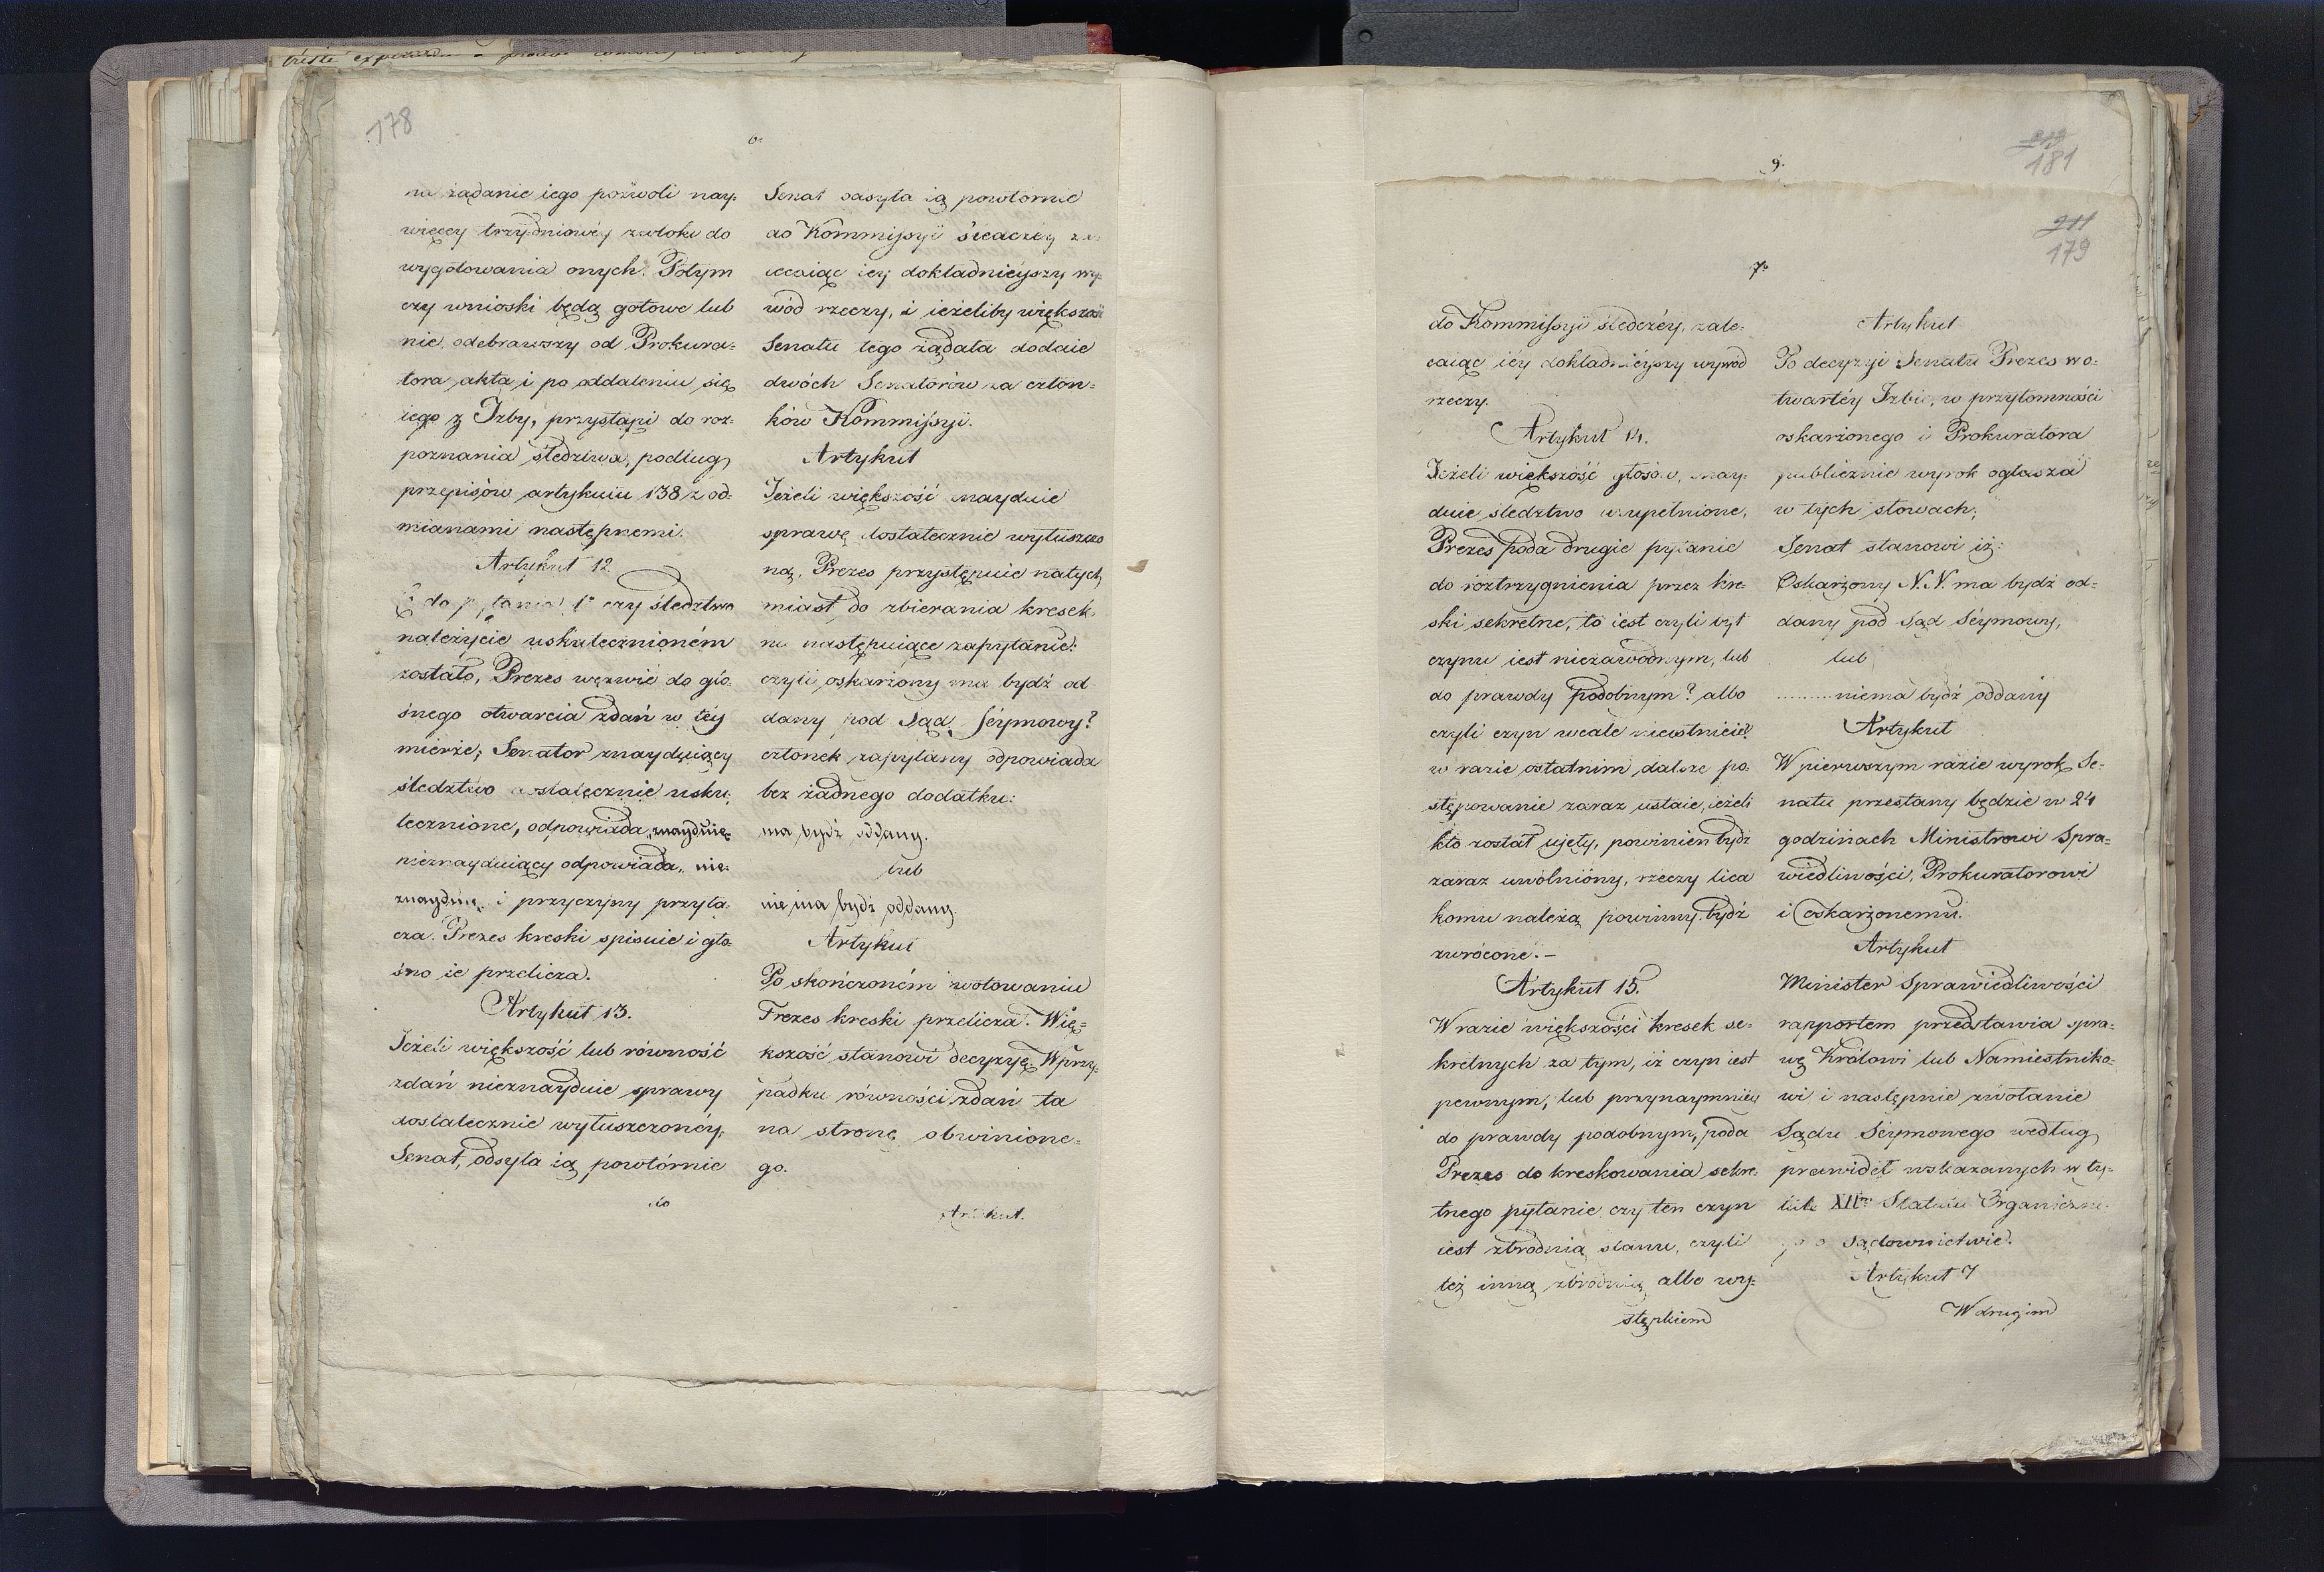 178
6.
na żądanie iego pozwoli nay-
więcey trzydniowéy zwłoki do
wygotowania onych. Potym
czy wnioski będą gotowe lub
nie, odebrawszy od Prokura=
tora akta i po oddaleniu się
iego z Izby, przystąpi do roz=
poznania śledztwa, podług
przepisów artykułu 138 z od=
mianami następnemi.
Artykuł 12.
do pytania 1° czy śledztwo
należycie uskutecznioném
zostało, Prezes wezwie do gło=
śnego otwarcia zdań w téy
mierze; Senator znayduiący
śledztwo dostatecznie usku=
tecznione, odpowiada „znayduię
nieznayduiący odpowiada „nie=
znayduię" i przyczyny przyta=
cza. Prezes kreski spisuie i gło=
śno ie przelicza.
Artykuł 13.
Jeżeli większość lub równość
zdań nieznayduie sprawy
dostatecznie wytłuszczonéy,
Senat, odsyła ią powtórnie
do
Senat odsyła ią powtórnie
do Kommissyi śledczéy za=
lecaiąc iéy dokładnieyszy wy=
wód rzeczy, i ieżeliby większość
Senatu tego żądała dodaie
dwóch Senatorów za człon=
ków Kommissyi.
Artykuł
Jeżeli większość znayduie
sprawę dostatecznie wytłuszczo
ną, Prezes przystępuie natych
miast do zbierania kresek
na następuiące zapytanie:
czyli oskarżony ma bydź od=
dany pod Sąd Séymowy?
członek zapytany odpowiada
bez żadnego dodatku:
ma bydź oddany.
lub
nie ma bydź oddany.
Artykuł
Po skończoném wotowaniu
Prezes kreski przelicza. Wię=
kszość stanowi decyzyę. W przy=
padku równości zdań ta
na stronę obwinione=
go.
Artykuł.
9.
213
181
211
179
7.
do Kommissyi śledczéy, zale=
caiąc iéy dokładniéyszy wywód
rzeczy.
Artykuł 14.
Jeżeli większość głosów, znay=
duie śledztwo uzupełnione,
Prezes poda drugie pytanie
do roztrzygnienia przez kre=
ski sekretne, to iest czyli byt
czynu iest niezawodnym, lub
do prawdy podobnym? albo
czyli czyn wcale nieistnieie?
w razie ostatnim, dalsze po=
stępowanie zaraz ustaie, ieżeli
kto został uięty, powinien bydź
zaraz uwolniony, rzeczy lica
komu należą powinny bydź
zwrócone. –
Artykuł 15.
W razie większości kresek se=
kretnych za tym, iż czyn iest
pewnym, lub przynaymniéy
do prawdy podobnym, poda
Prezes do kreskowania sekre=
tnego pytanie czy ten czyn
iest zbrodnią stanu, czyli
też inną zbrodnią albo wy=
stępkiem
Artykuł
Po decyzyi Senatu Prezes w o=
twartéy Izbie, w przytomności
oskarżonego i Prokuratora
publicznie wyrok ogłasza
w tych słowach;
Senat stanowi iż:
Oskarżony N. N. ma bydź od=
dany pod Sąd Séymowy,
lub
.......... niema bydź oddany
Artykuł
W pierwszym razie wyrok Se=
natu przesłany będzie w 24
godzinach Ministrowi Spra=
wiedliwości, Prokuratorowi
i Oskarżonemu.
Artykuł
Minister Sprawiedliwości
rapportem przedstawia spra=
wę Królowi lub Namiestniko=
wi i następnie zwołanie
Sądu Séymowego według
prawideł wskazanych w ty=
tule XII Statutu Organiczne=
go o Sądownictwie.
Artykuł 7
W drugim